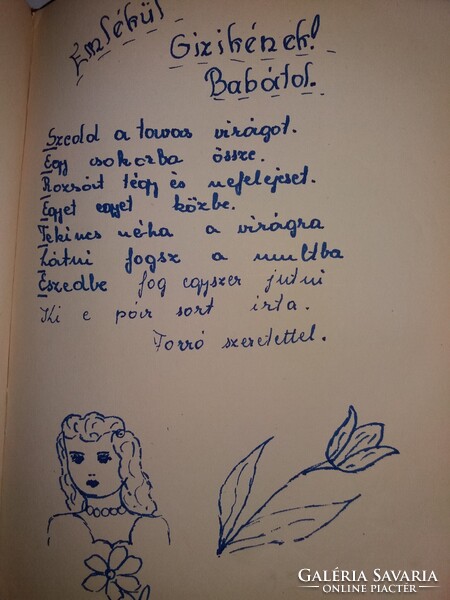 Emlékül
Gizikének!
Babától.
Szedd a tavas virágot.
Egy csokorba össze.
Rozsát tégy és nefelejcset.
Egyet egyet közbe.
Tekincs néha a virágra
Látni fogsz a multba
Eszedbe fog egyszer jutni
Ki e pár sort irta.
Forró szeretettel.
GALÉRIA SAVARIA
ONLINE PIACTÉR